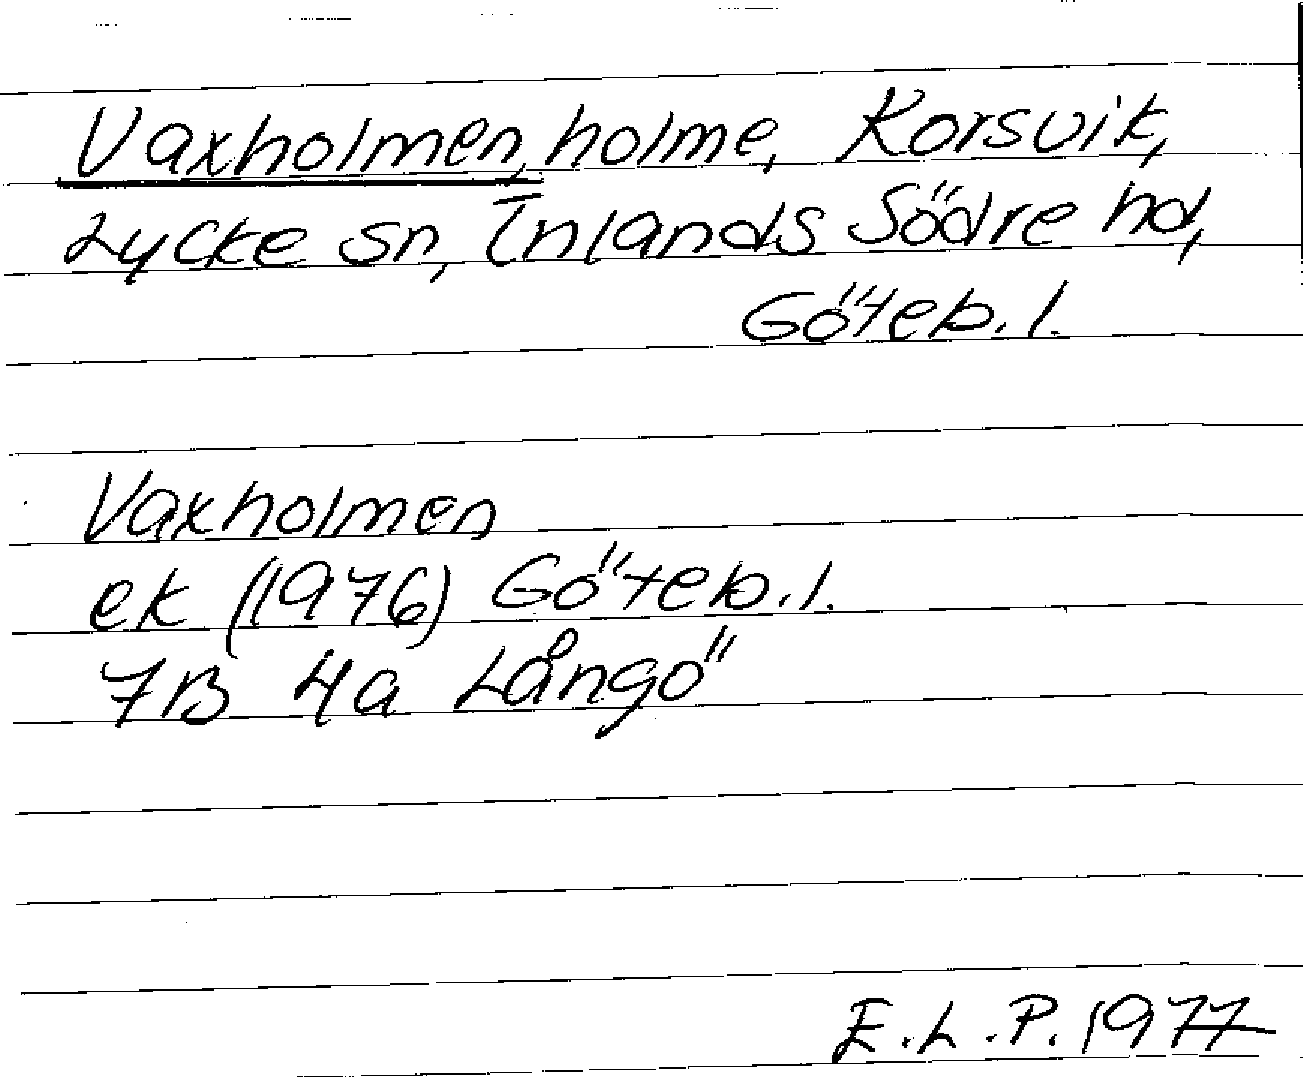 Vaxholmen, holme, Korsvik,
Lycke sn, Inlands Södre hd,
Göteb. l.
Vaxholmen
ek (1976) Göteb. l.
7B 4a Långö
E.L.P. 1977